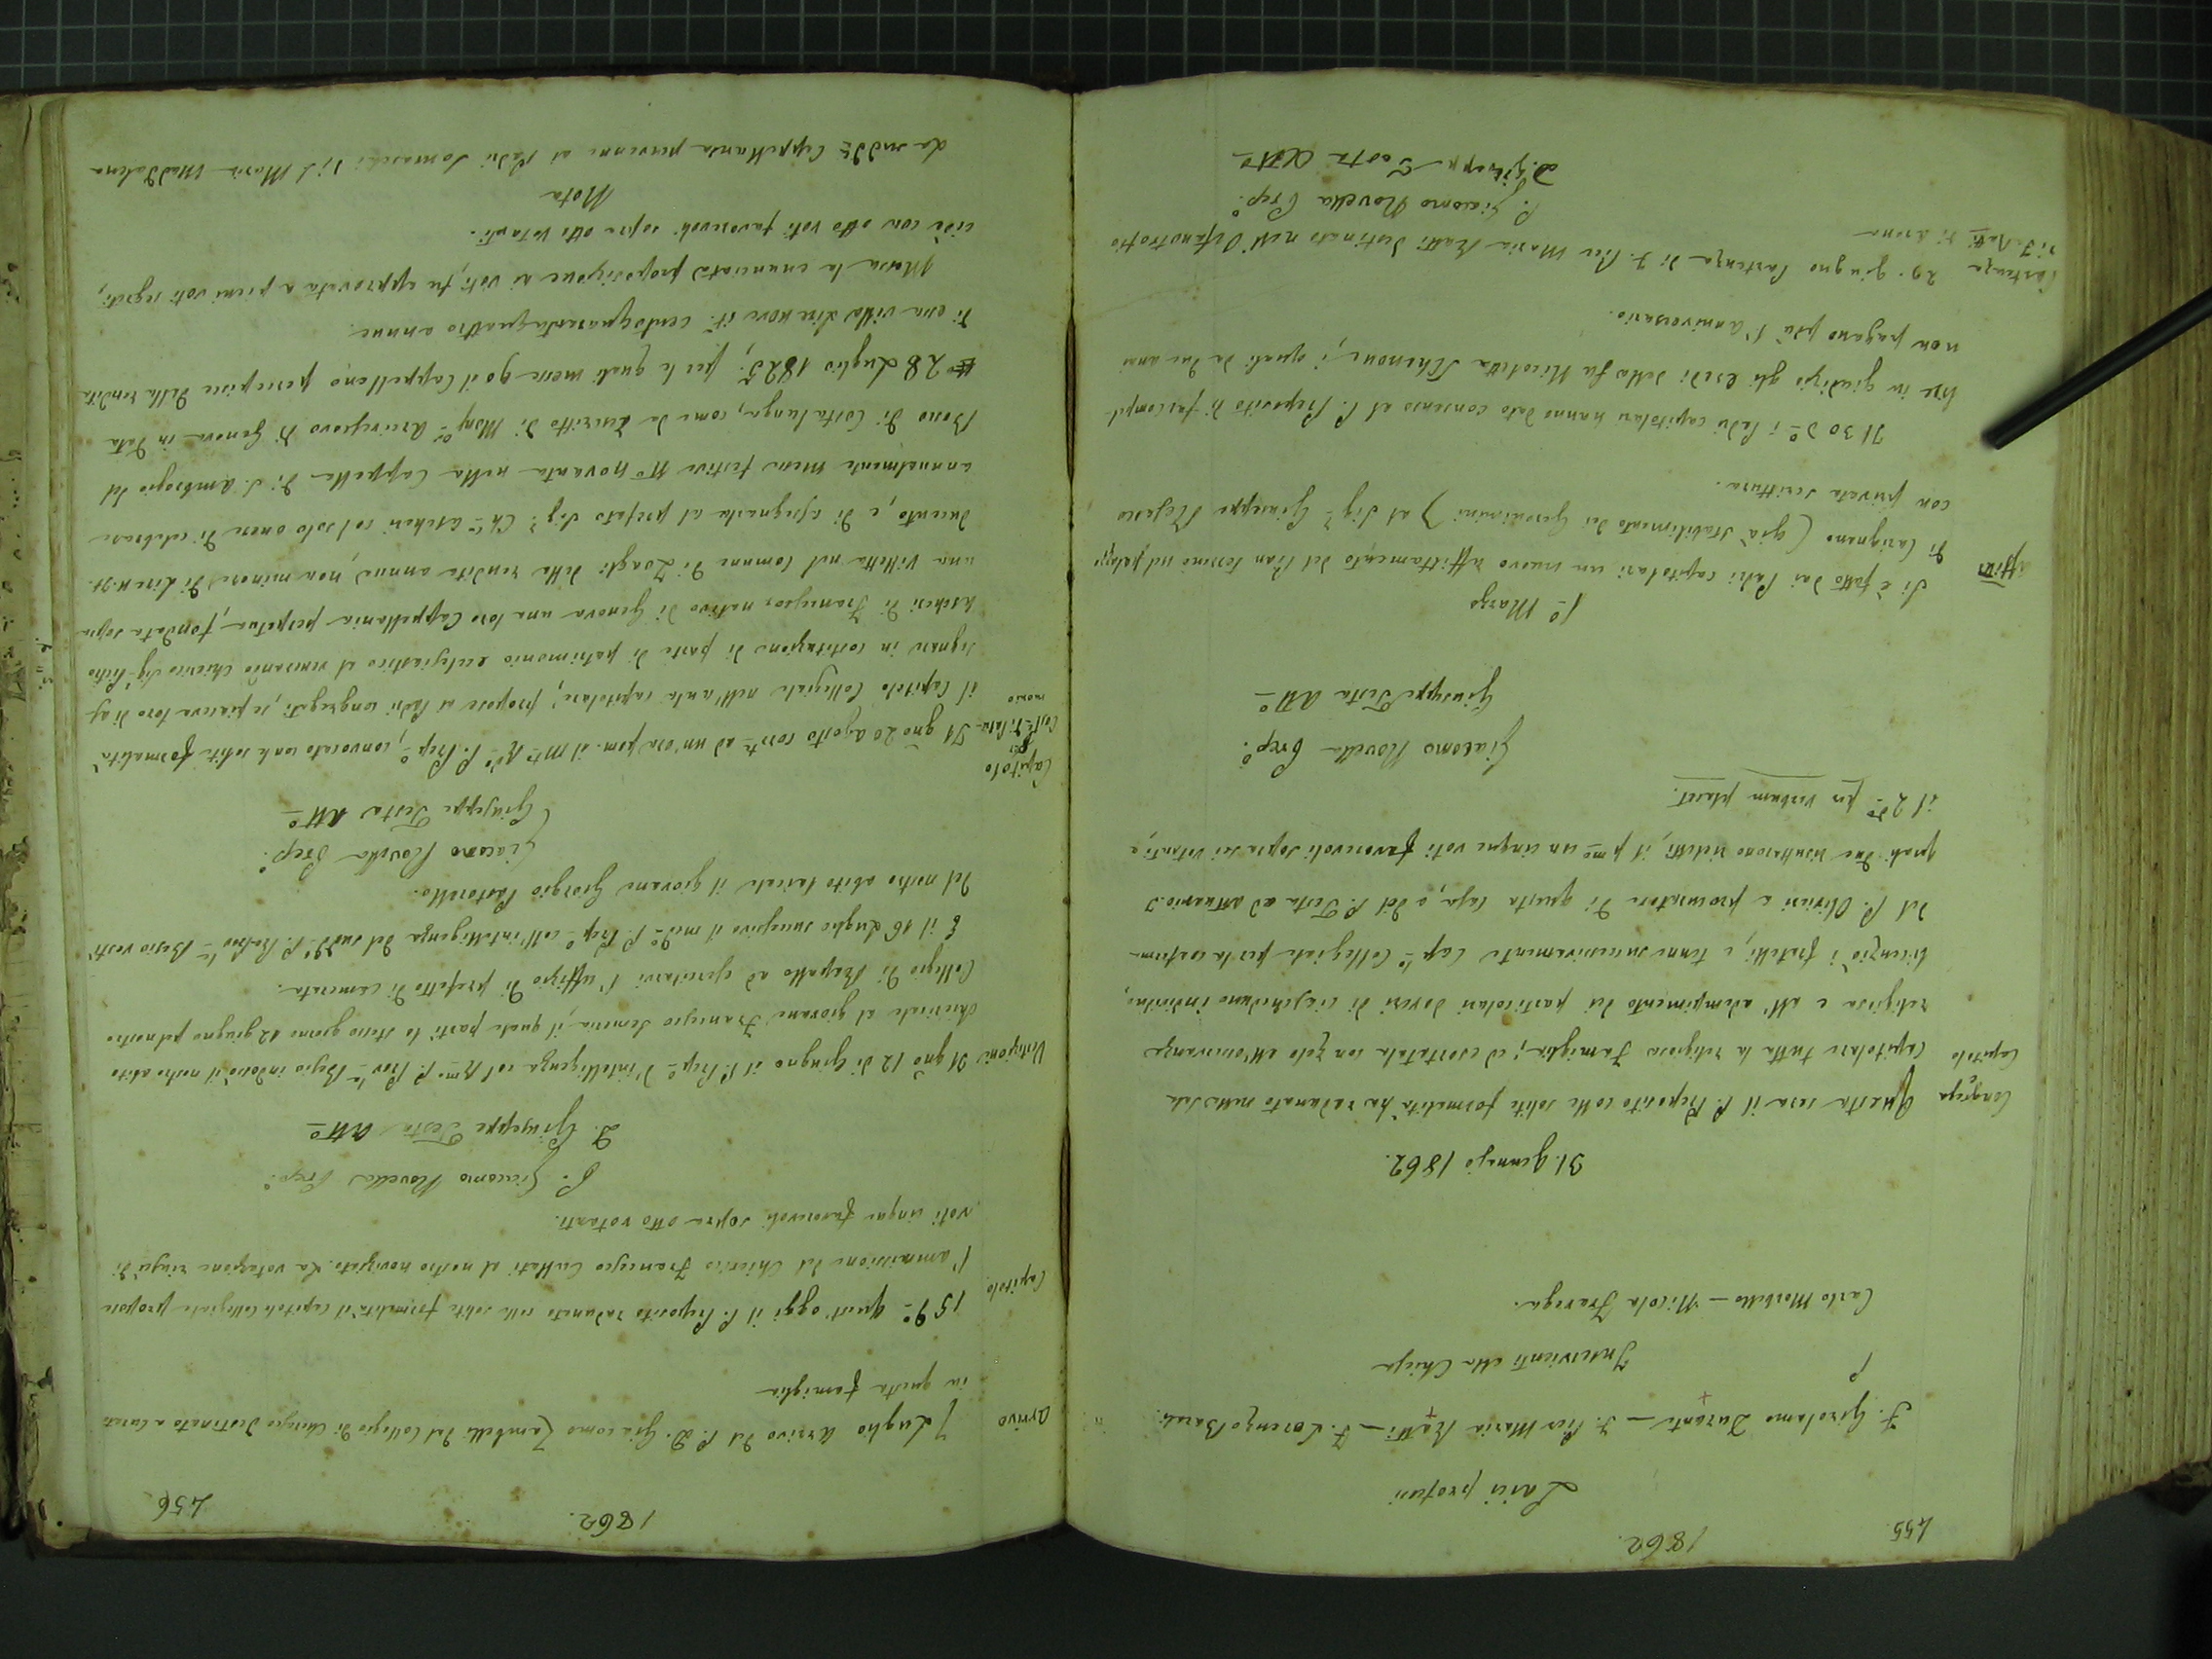 455
1862.
Laici professi
F. Girolamo Durante — F. Pier Maria Ratti — F. Lorenzo
Inservienti alla Chiesa
Carlo Morbello — Nicola Fravega.
31. Gennajo 1862.
Congrega
Capitolo
Questa sera il P. Preposito colle solite formalità ha radunato nella Sala
capitolare tutta la religiosa Famiglia; ed esortatala con zelo all'osservanza
religiosa e all'adempimento dei particolari doveri di ciascheduno individuo,
licenziò i fratelli, e tenne successivamente Cap.lo Collegiale per la conferm-
del P. Olivieri a procuratore di questa Casa, e del P. Testa ad attuario. I
quali due risultarono rieletti, il p.mo con cinque voti favorevoli sopra sei votanti e
il 2.do per verbum placet.
Giacomo Novella Prep.o
Giuseppe Testa Att.o
1.o Marzo
Affitti
Si è fatto dai Padri capitolari un nuovo affittamento del Pian terreno nel palazzo
di Carignano (già stabilimento dei Gerolimini) al Sig.r Giuseppe
con privata scrittura.
Il 30 d.o i Padri capitolari hanno dato consenso al P. Preposito di far comp-
in giudizio gli Eredi della fu Nicoletta i quali da due anni
non pagano più l'anniversario.
Partenza
di F. Ratti
29. Giugno Partenza di F. Pier Maria Ratti destinato nell'Orfanotrofio
P. Giacomo Novella Prep.o
D. Giuseppe Testa Att.o
1862.
456
Arrivo
7 Luglio Arrivo del P. D. Giacomo Zambelli dal Collegio di Cherasco destinato a Curato
in questa famiglia
Capitolo.
15 d.o quest'oggi il P. Preposito radunato colle solite formalità il capitolo Collegiale propose
l'ammissione del Chierico Francesco al nostro noviziato. La votazione riuscì di
voti cinque favorevoli sopra otto votanti.
P. Giacomo Novella Prep.o
D. Giuseppe Testa Att.o
Vestizioni
Il gno 12 di Giugno il P. Prep.o d'intelligenza col R.mo P. Prov.le Besio indossò il nostro abito
chiericale al giovane Francesco Semeria, il quale partì lo stesso giorno 12 giugno pel nostro
Collegio di Rapallo ad esercitarvi l'uffizio di prefetto di camerata.
E il 16 Luglio successivo il med.o P. Prep.o coll'intelligenza del sudd.o P. Besio vestì
del nostro abito laicale il giovane Giorgio Pastorello.
Giacomo Novella Prep.o
Giuseppe Testa Att.o
Capitolo
per
monio
Il gno 20 agosto corr.te ad un'ora pom. il M.to R.do P. Prep.o, convocato con le solite formalità
il Capitolo Collegiale nell'aula capitolare, propose ai Padri congregati, se piaceva loro di as-
segnare in costituzione di parte di patrimonio ecclesiastico al Chierico Sig.r Pietro
Ascheri di Francesco, nativo di Genova una loro Cappellania perpetua, fondata sopra
una villetta nel comune di Zoagli della rendita annua, non minore di Lire n.
duecento, e di assegnarla al prefato Sig.r Ch.co Ascheri col solo onere di celebrare
annualmente messe festive N.o novanta nella Cappella di S. Ambrogio del
Bosco di Costa lunga, come da Rescritto di Mons.r Arcivescovo di Genova in data
28 Luglio 1825; per le quali messe 90 il Cappellano percepisce dalla rendita
di essa villa Lire nove it. centoquarantaquattro annue.
Messa la enunciata proposizione ai voti fu approvata a pieni voti segreti,
cioè con otto voti favorevoli sopra otto votanti.
Nota
La sudd.a Cappellania pervenne ai Padri Somaschi di S. Maria Maddalena